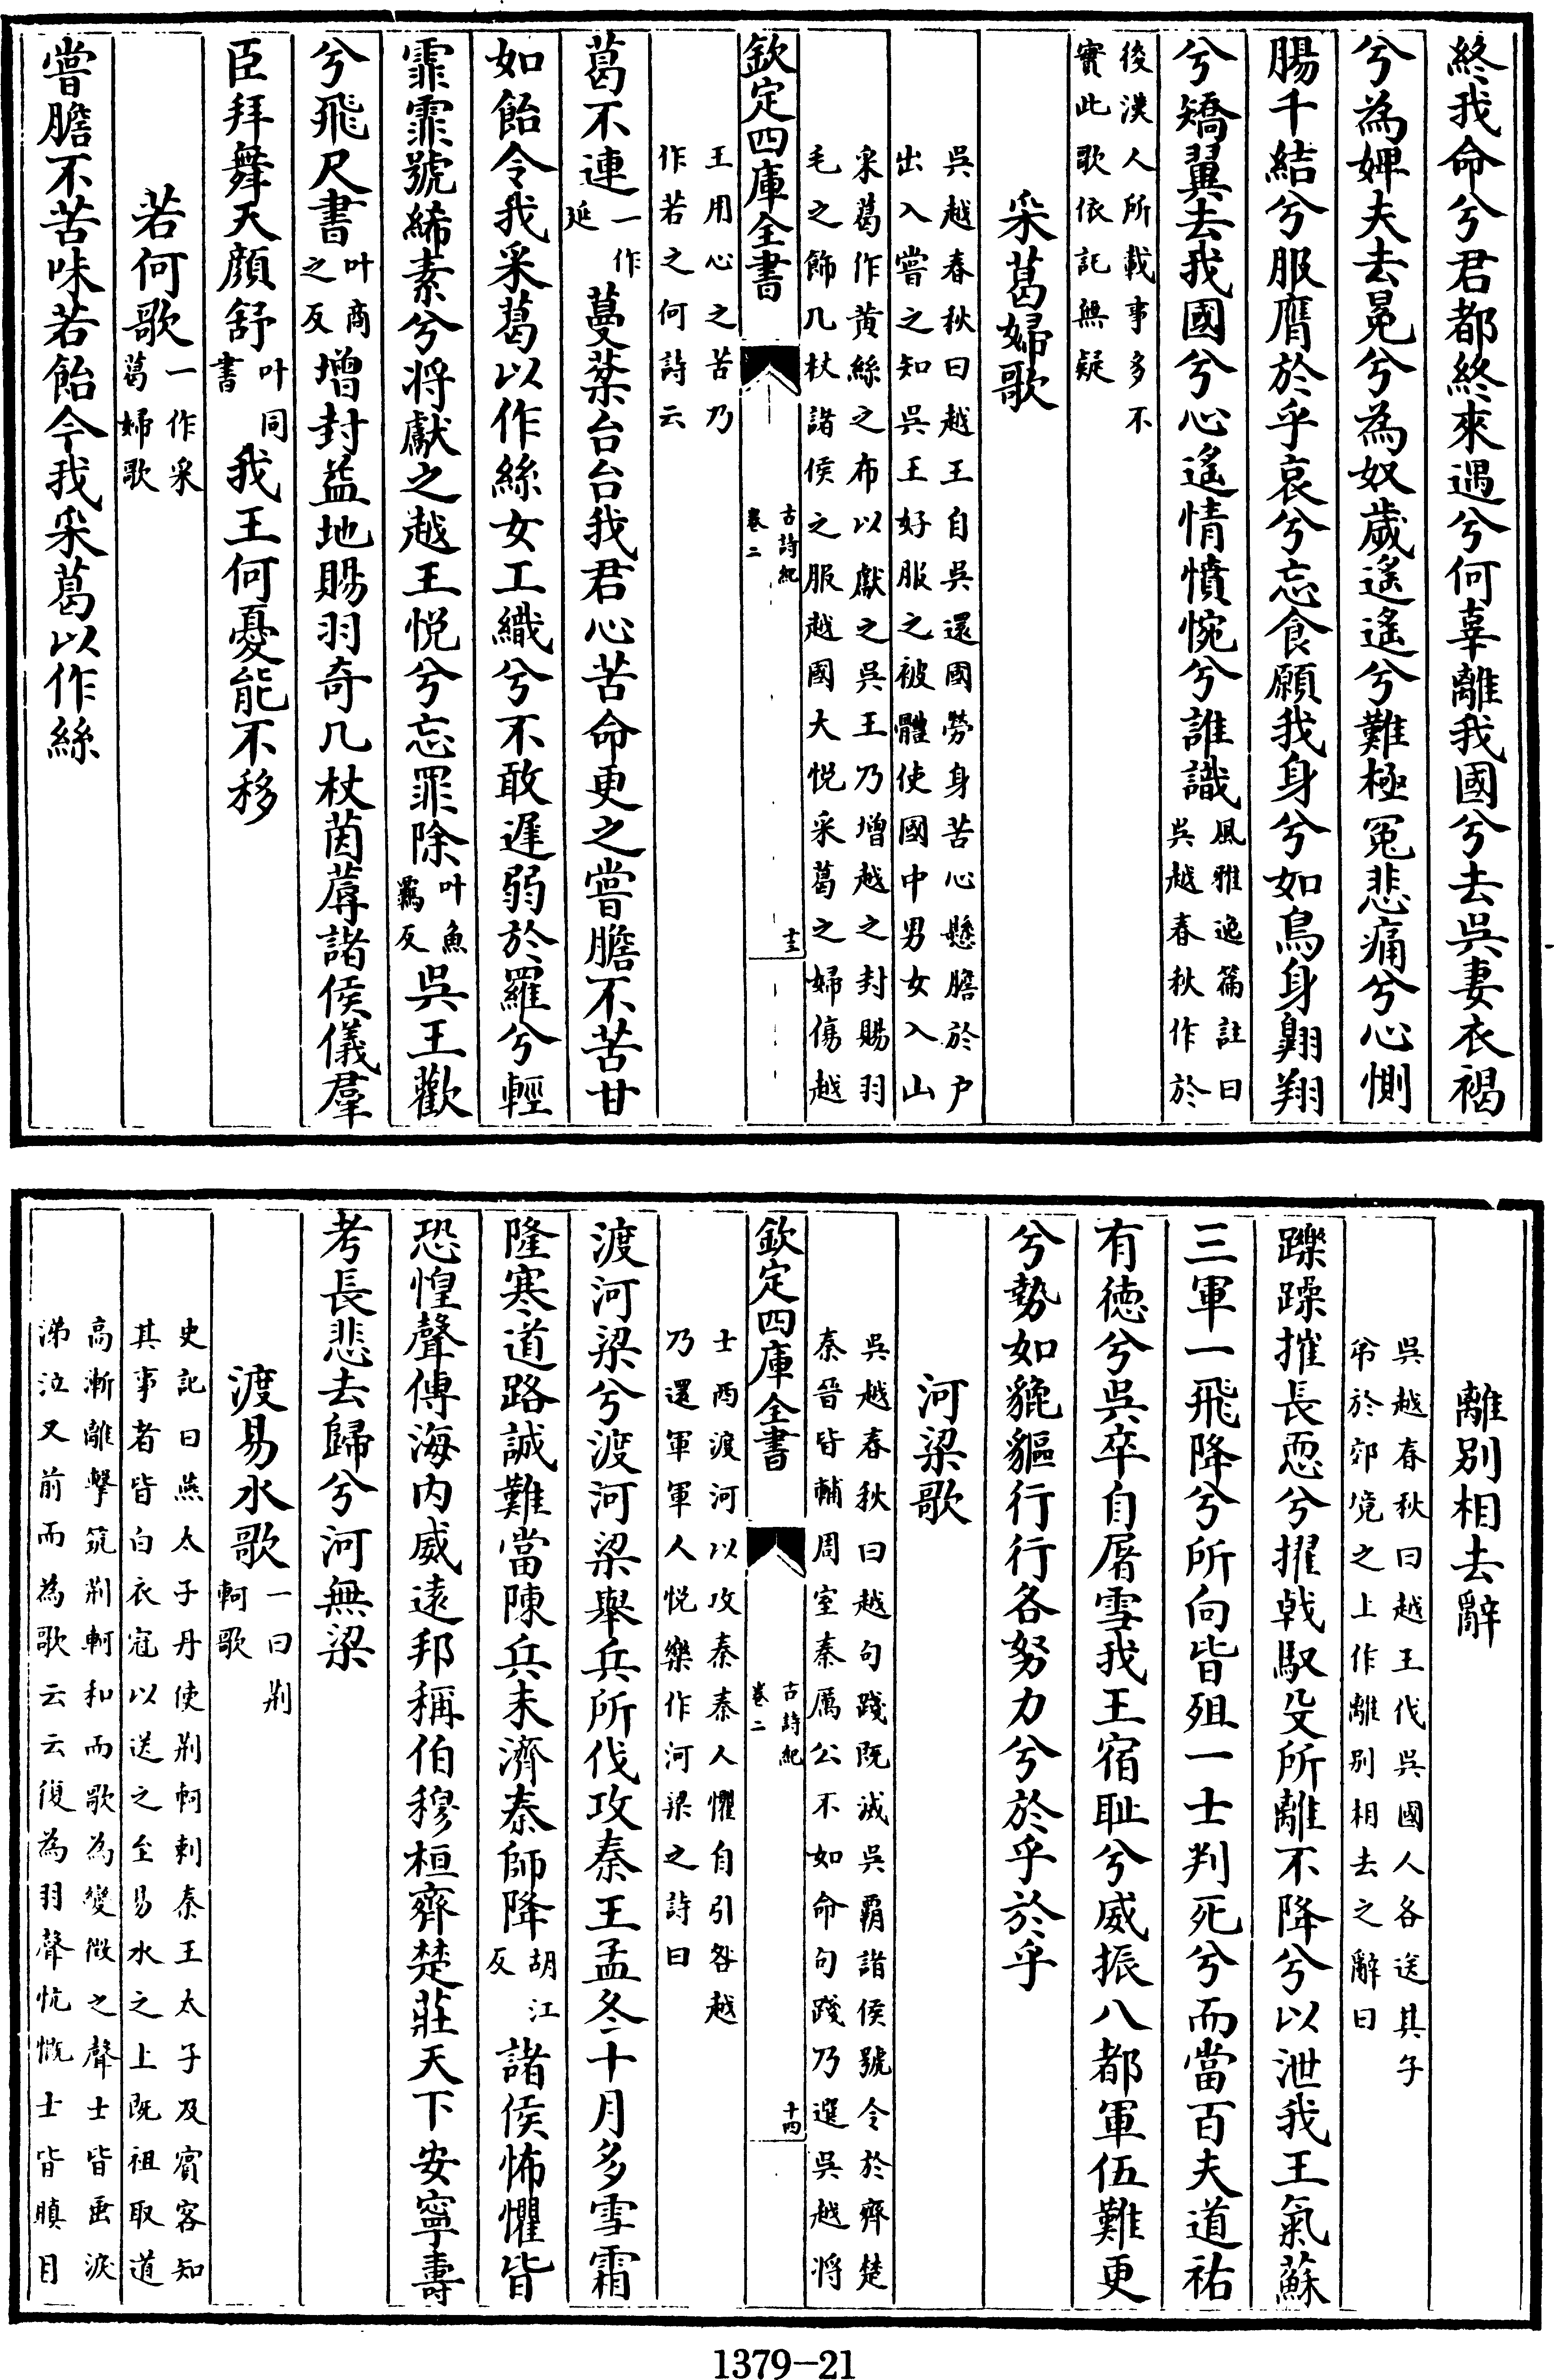 終我命兮君都終來遇兮何辜離我國兮去吳妻衣褐
兮為婢夫去冕兮為奴歲遙遙兮難極冤悲痛兮心惻
腸千結兮服膺於乎哀兮忘食願我身兮如鳥身翺翔
兮矯翼去我國兮心遙情憤惋兮誰識風雅逸篇註曰
吳越春秋作於
後漢人所載事多不
實此歌依託無疑
采葛婦歌
吳越春秋曰越王自吳還國勞身苦心懸膽於户
出入嘗之知吳王好服之被體使國中男女入山
采葛作黄絲之布以獻之吳王乃增越之封賜羽
毛之飾几杖諸侯之服越國大悦采葛之婦傷越
欽定四庫全書
古詩紀
卷二
十三
王用心之苦乃
作若之何詩云
葛不連一作
延蔓棻台台我君心苦命更之嘗膽不苦甘
如飴令我采葛以作絲女工織兮不敢遲弱於羅兮輕
霏霏號絺素兮将獻之越王悦兮忘罪除叶魚
羈反吳王歡
兮飛尺書叶商
之反增封益地賜羽奇几杖茵蓐諸侯儀羣
臣拜舞天顔舒叶同
書我王何憂能不移
若何歌一作采
葛婦歌
嘗膽不苦味若飴令我采葛以作絲
離别相去辭
吳越春秋曰越王伐吳國人各送其子
弟於郊境之上作離别相去之辭曰
躒躁摧長恧兮擢戟馭殳所離不降兮以泄我王氣蘇
三軍一飛降兮所向皆殂一士判死兮而當百夫道祐
有徳兮吳卒自屠雪我王宿耻兮威振八都軍伍難更
兮勢如貔貙行行各努力兮於乎於乎
河梁歌
吳越春秋曰越句踐既滅吳霸諸侯號令於齊楚
秦晉皆輔周室秦厲公不如命句踐乃選吳越将
欽定四庫全書
古詩紀
卷二
十四
士西渡河以攻秦秦人懼自引咎越
乃還軍軍人悦樂作河梁之詩曰
渡河梁兮渡河梁舉兵所伐攻秦王孟冬十月多雪霜
隆寒道路誠難當陳兵未濟秦師降胡江
反諸侯怖懼皆
恐惶聲傳海内威逺邦稱伯穆桓齊楚莊天下安寧壽
考長悲去歸兮河無梁
渡易水歌一曰荆
軻歌
史記曰燕太子丹使荆軻刺秦王太子及賓客知
其事者皆白衣冠以送之至易水之上既祖取道
高漸離擊筑荆軻和而歌為變徴之聲士皆垂淚
涕泣又前而為歌云云復為羽聲忼慨士皆瞋目
1379-21